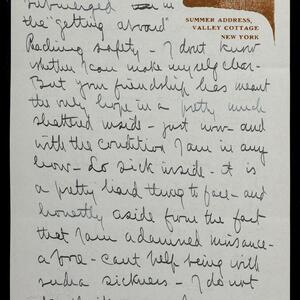 submerged in
the "getting aboard"
SUMMER ADDRESS,
VALLEY COTTAGE
NEW YORK
Reaching safety - I dont know
whether I can make myself clear -
But your friendship has meant
the only hope in a pretty much
shattered inside - just now - and
with the condition I am in any
how - So sick inside - it is
a pretty hard thing to face - and
honestly aside from the fact
that I am a damned nuisance -
a bore - cant help being with
such a sickness - I do not